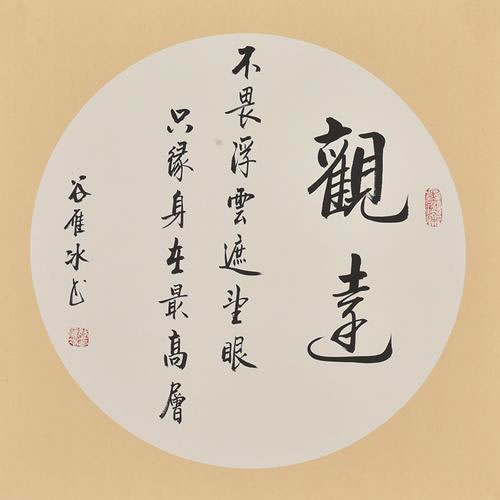 觀遠
不畏浮雲遮望眼
只緣身在最高層
谷雁冰